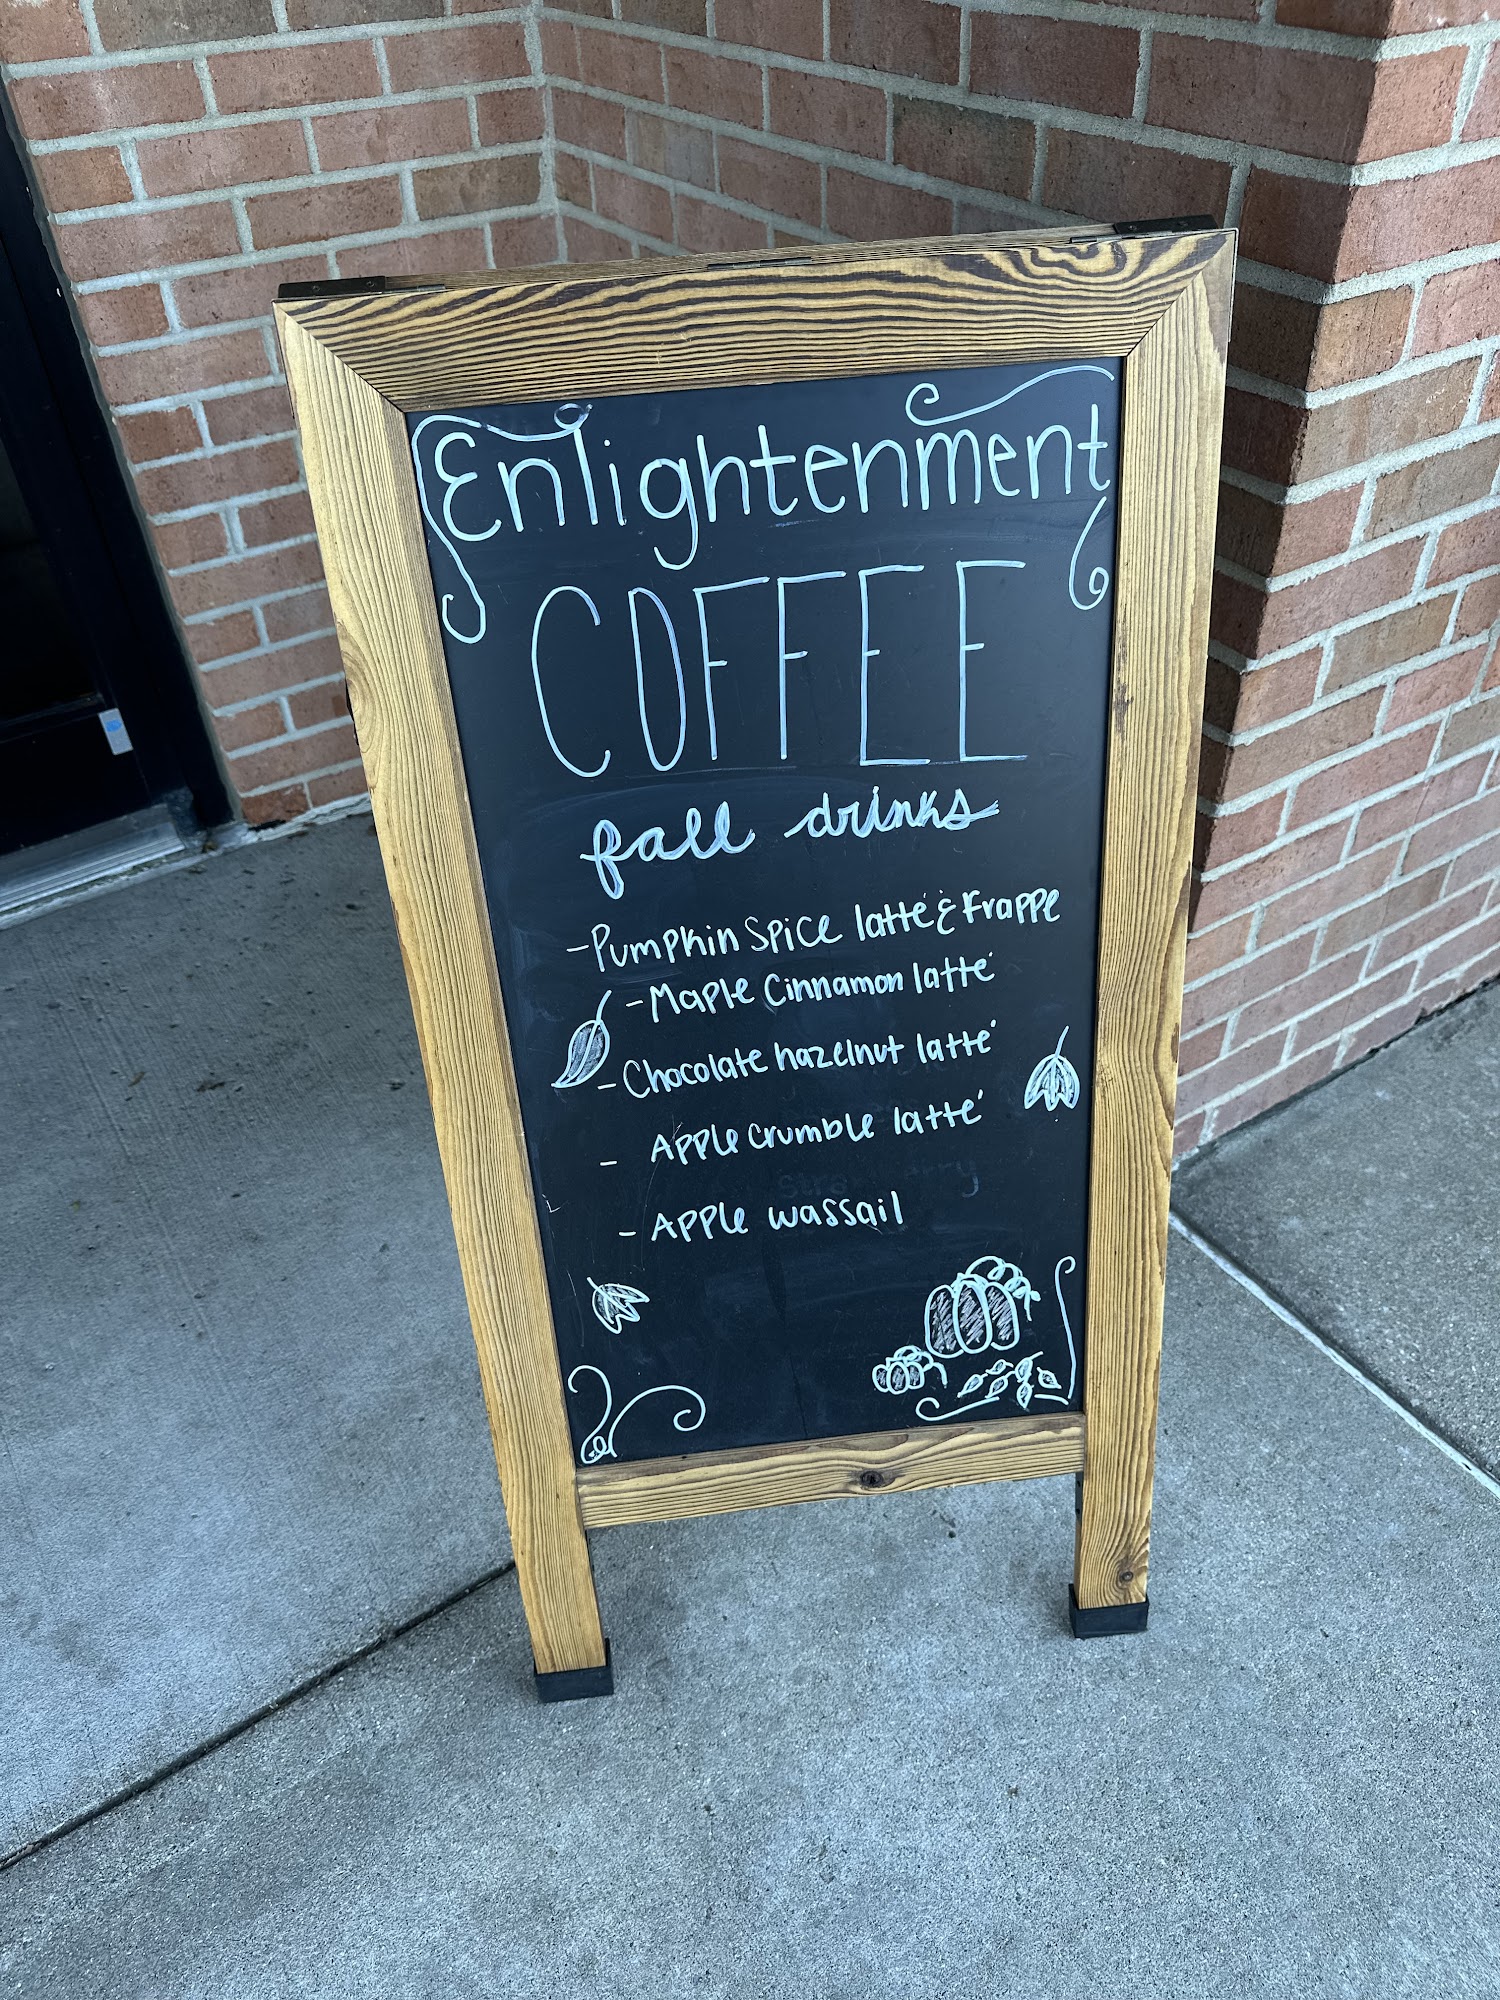 Enlightenment
COFFEE
fall drinks
-Pumpkin Spice latté & Frappe
-Maple Cinnamon latté
-Chocolate hazelnut latté
- Apple Crumble latté
- Apple wassail